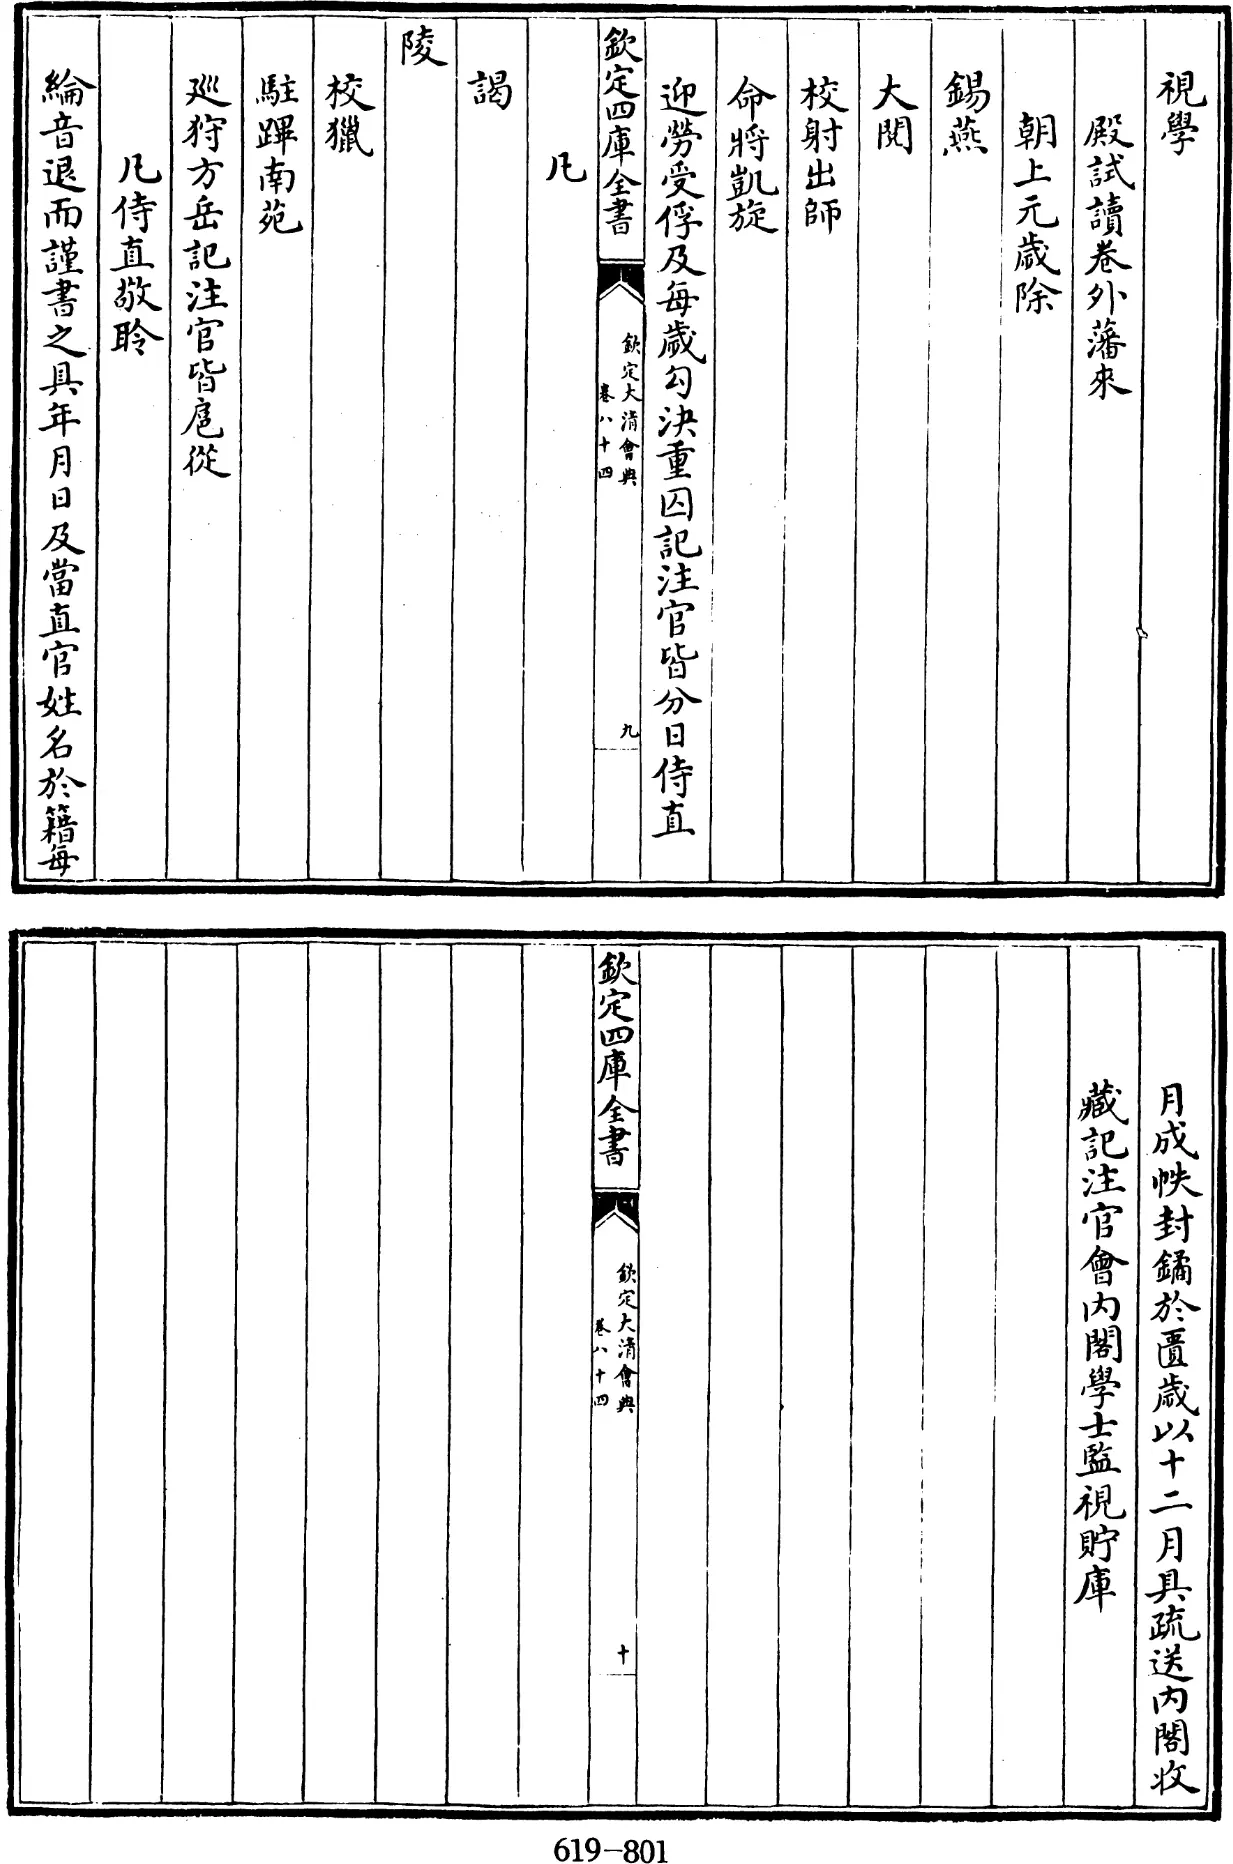 視學
殿試讀卷外藩來
朝上元歳除
錫燕
大閱
校射出師
命將凱旋
迎勞受俘及每歳勾決重囚記注官皆分日侍直
欽定四庫全書
欽定大清會典
卷八十四
九
凡
謁
陵
校獵
駐蹕南苑
廵狩方岳記注官皆扈從
凡侍直敬聆
綸音退而謹書之具年月日及當直官姓名於籍每
月成帙封鐍於匱歳以十二月具疏送内閣收
藏記注官會内閣學士監視貯庫
欽定四庫全書
欽定大清會典
卷八十四
十
619-801